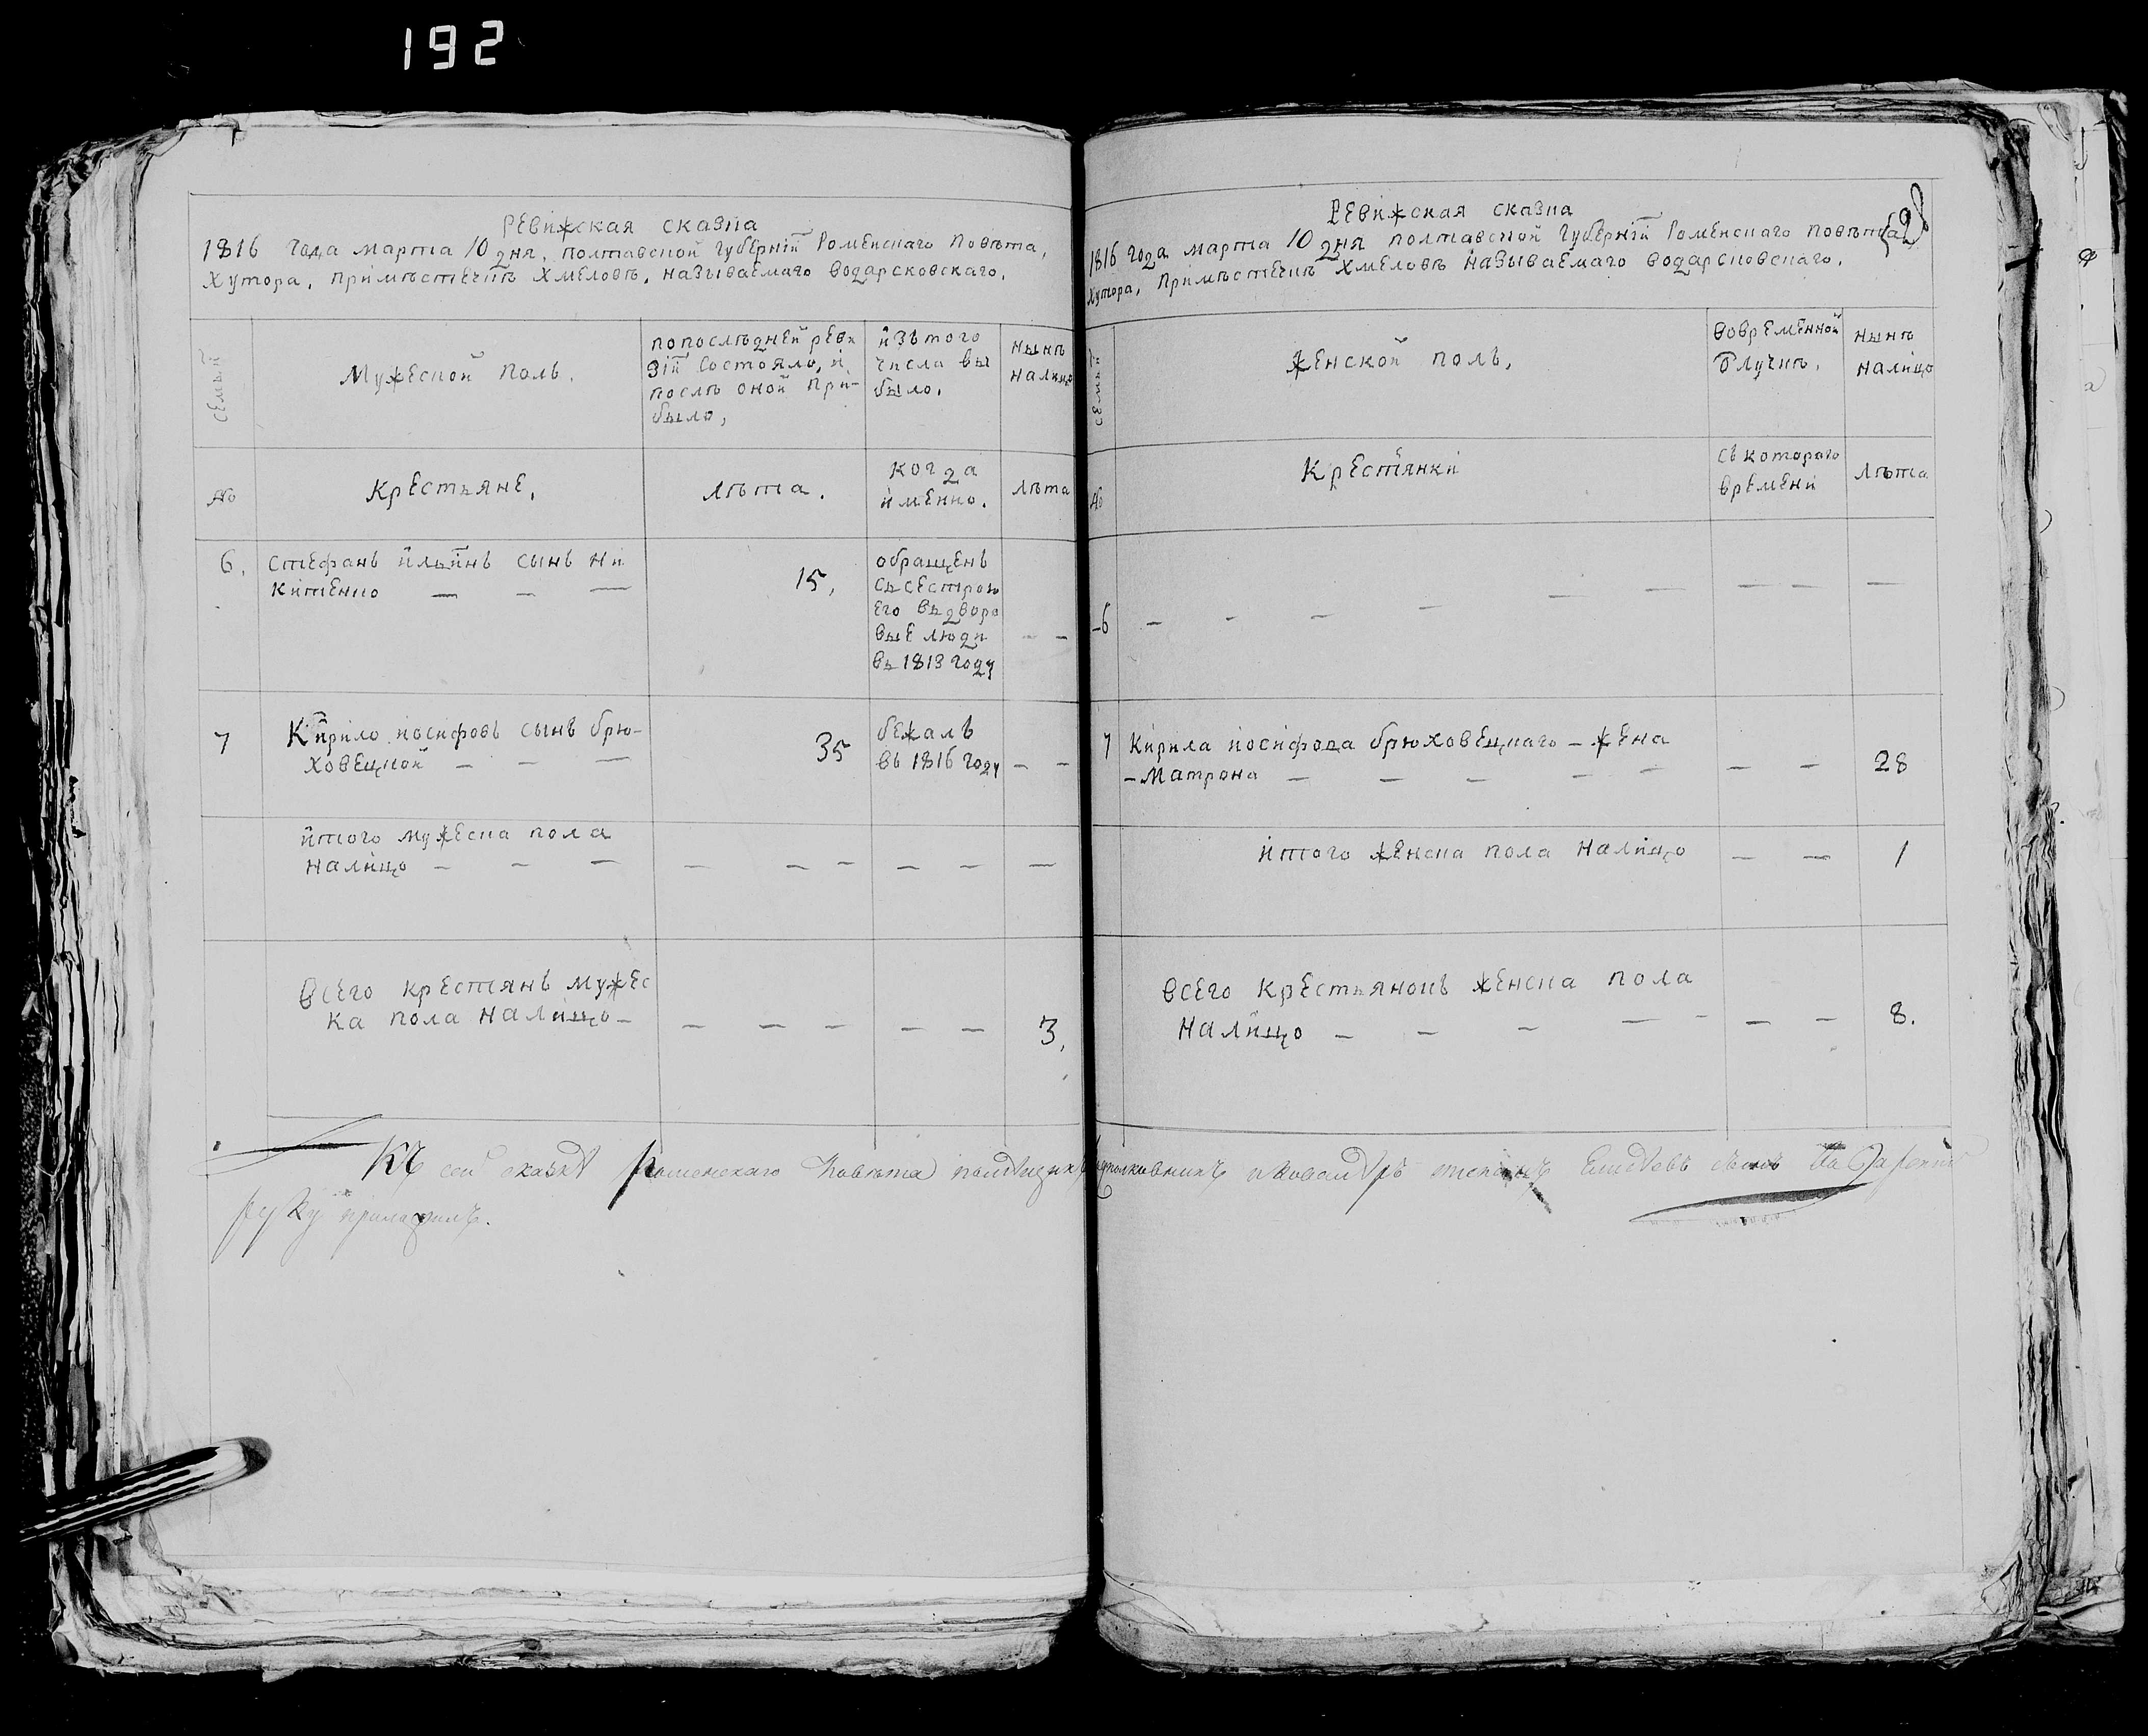 192
Ревижская сказка
1816 года марта 10 дня, полтавской губернїи Роменскаго Повѣта,
Хутора, примѣстечкѣ Хмеловѣ, называемаго водарсковскаго,
семьи
Мужеской полъ,
попослѣдней реви
зїи состояло, и
послѣ оной при-
было,
изътого
числа вы
было,
нынѣ
налицо
№
Крестьяне,
лѣта.
когда
именно.
лѣта
6,
стефанъ ильинъ сынъ ни
китенко — — —
15,
обращенъ
съсестрою
его въдворо
вые люди
въ 1813 году
— —
7
Кирило иосифовъ сынъ брю-
ховецкой — — —
35
бежалъ
въ 1816 году
— —
итого мужеска пола
налицо — — — — — — — — —
всего крестянъ мужес
ка пола налицо — — — — — —
3,
Ревижская сказка
1816 года марта 10 дня полтавской губернїи Роменскаго повѣта
Хутора, примѣстечкѣ Хмеловѣ называемаго водарсковскаго,
семьи
женской полъ,
вовременной
ѿлучкѣ,
нынѣ
налицо
№
Крестянки
съкотораго
времени
лѣта
6 — — — — — — — — —
7
Кирила иосифова брюховецкаго — жена
— Матрона — — — — — — —
28
итого женска пола налицо — —
1
всего крестьянокъ женска пола
налицо — — — — — — —
8.
Къ сей сказкѣ Роменскаго Повѣта помѣщикъ подполковникъ и кавалѣръ
руку приложилъ.